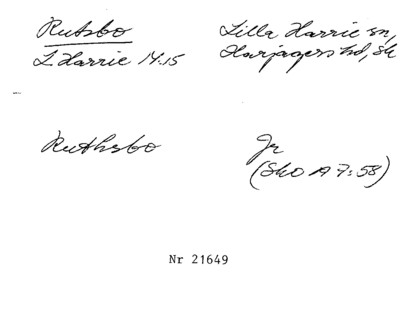 Rutsbo
L Harrie 14.15
Lilla Harrie sn,
Harjagers hd, Sk
Ruthsbo
Jr
(SkO A 7:58)
Nr 21649